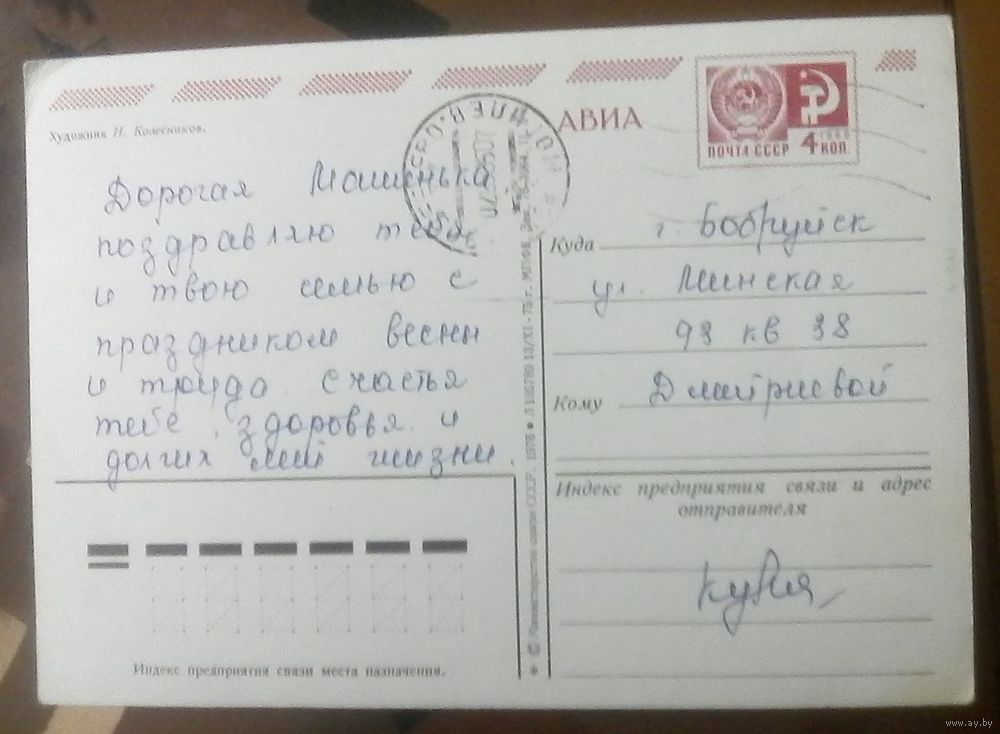 АВИА
ПОЧТА СССР
4 КОП.
Художник Н. Колесников.
Дорогая Машенька,
поздравляю тебя
и твою семью с
праздником весны
и труда. Счастья
тебе, здоровья и
долгих лет жизни.
Куда г. Бобруйск
ул. Минская
93 кв 38
Кому Дмитриевой
Индекс предприятия связи и адрес
отправителя
Индекс предприятия связи места назначения.
© Министерство связи СССР, 1976
www.ay.by